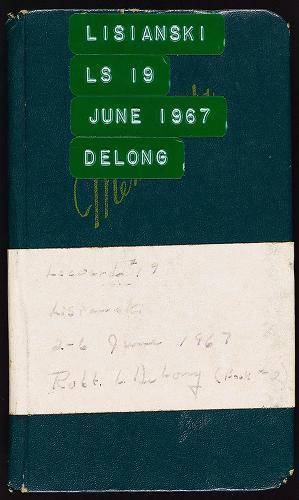 LISIANSKI
LS 19
JUNE 1967
DELONG
Leeward # 19
Lisianski
2-6 June 1967
Robt. L DeLong (Book #2)